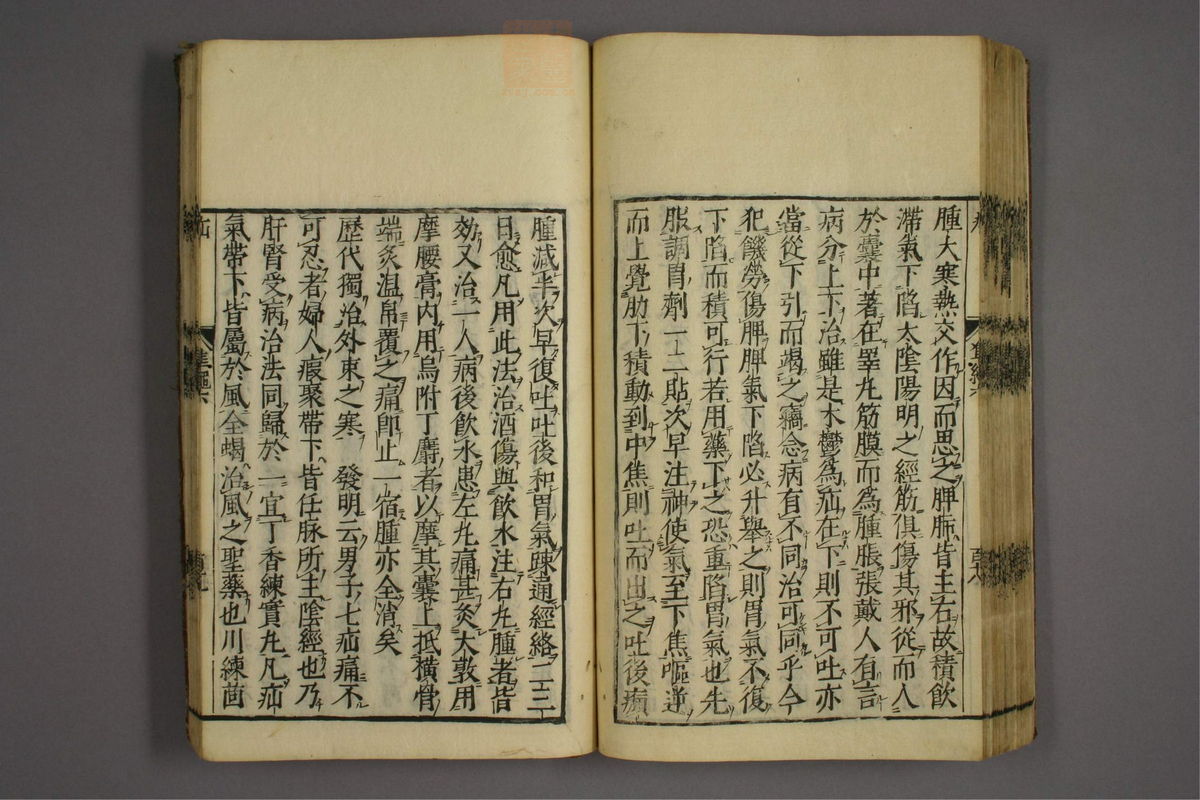 腫大寒熱交作因而思之脾肺皆主右故積飲
滯氣下陷太陰陽明之經筋俱傷其邪從而入
於囊中著在睪丸筋膜而為腫脹張戴人有言
病分上下治雖是木鬱為疝在下則不可吐亦
當從下引而竭之竊念病有不同治可同乎今
犯饑勞傷脾脾氣下陷必升舉之則胃氣不復
下陷而積可行若用藥下之恐重陷胃氣也先
服調胃劑一二貼次早注神使氣至下焦嘔逆
而上覺肋下積動到中焦則吐而出之吐後癩
腫減半次早復吐吐後和胃氣疎通經絡二三
日愈凡用此法治酒傷與飲水注右丸腫者皆
効又治一人病後飲水患左丸痛甚灸大敦用
摩腰膏內用烏附丁麝者以摩其囊上抵橫骨
端炙温帛覆之痛即止一宿腫亦全消矣
歷代獨治外束之寒 發明云男子七疝痛不
可忍者婦人瘕聚帶下皆任脉所主陰經也乃
肝腎受病治法同歸於一宜丁香練實丸凡疝
氣帶下皆屬於風全蝎治風之聖藥也川練茴
疝